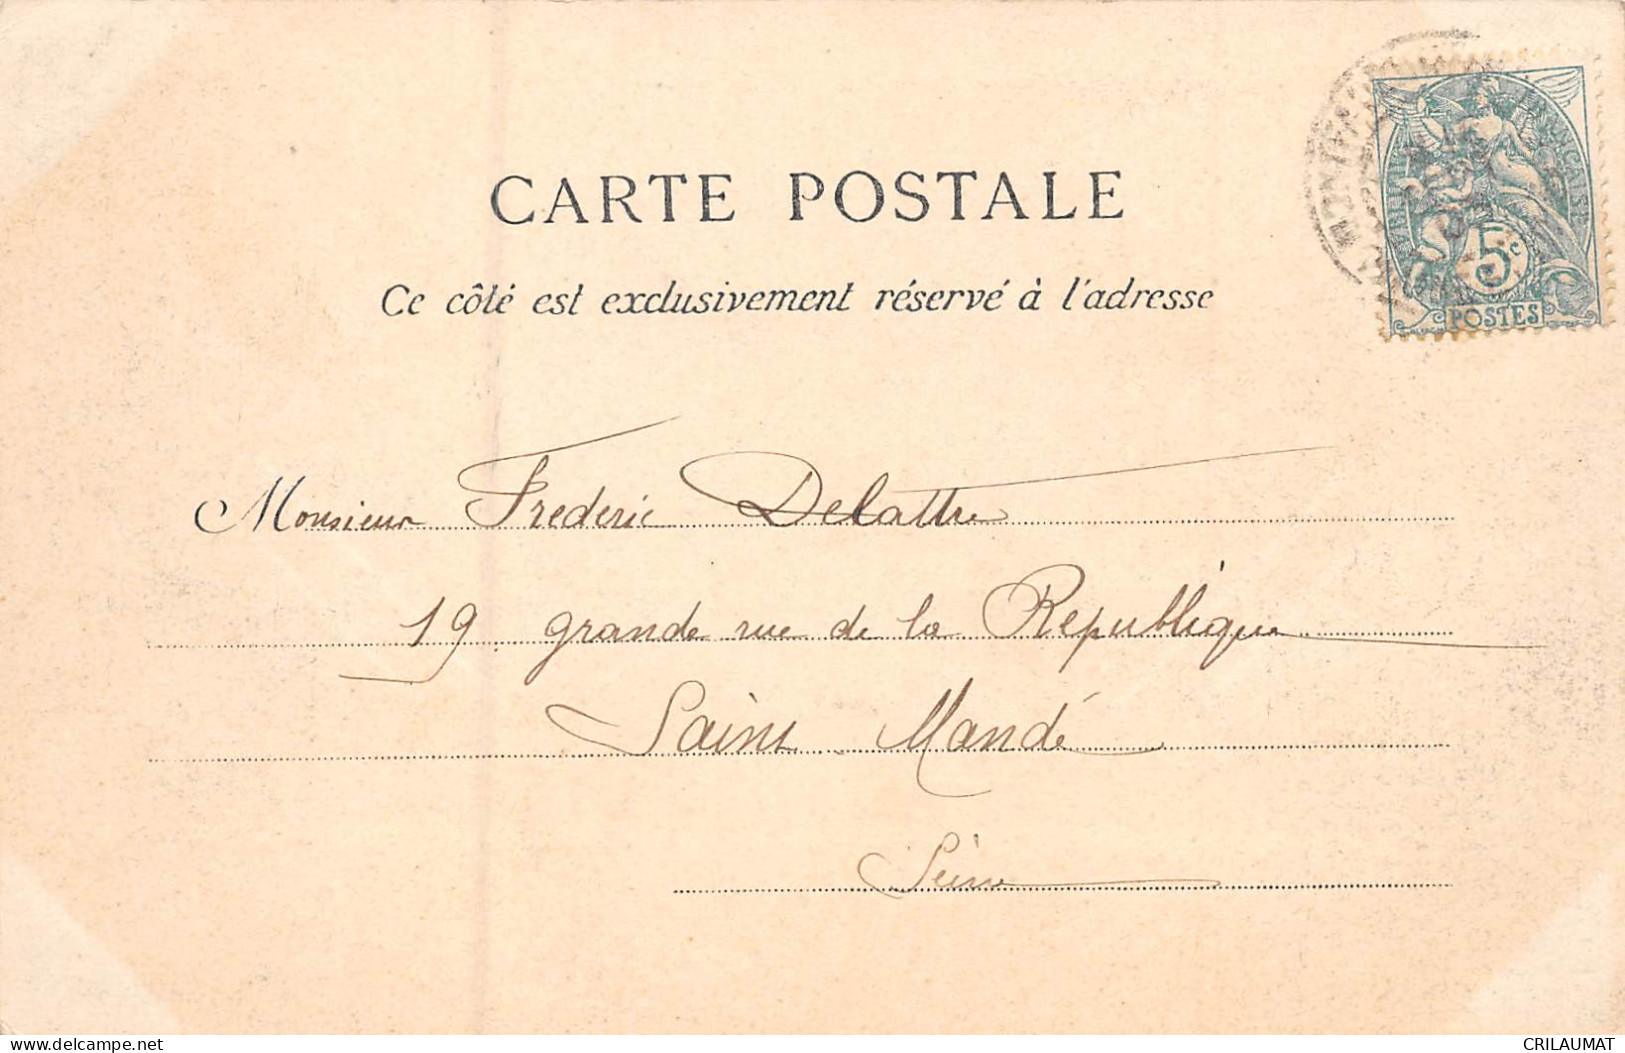 CARTE POSTALE
Ce côté est exclusivement réservé à l'adresse
5c
POSTES
Monsieur Frederic Delattre
19 grande rue de la Republique
Saint Mandé
Seine
delcampe.net
CRILAUMAT